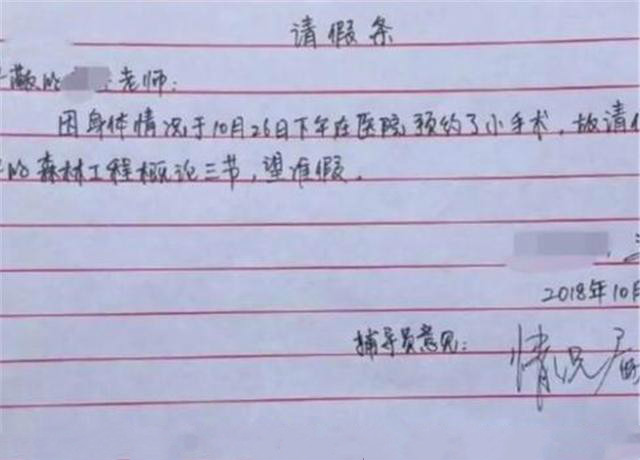 请假条
敬的 老师:
因身体情况于10月26日下午在医院预约了小手术,故请
的森林工程概论三节,望准假。
2018年10月
辅导员意见:
情况